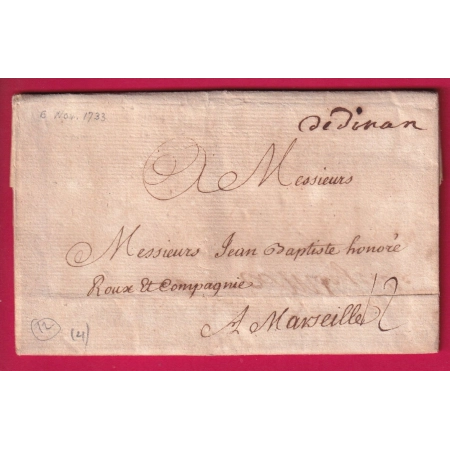 6 Nov. 1733
de dinan
A Messieurs
Messieurs Jean Baptiste honoré
Roux Et Compagnie
A Marseille 12
12 (4)